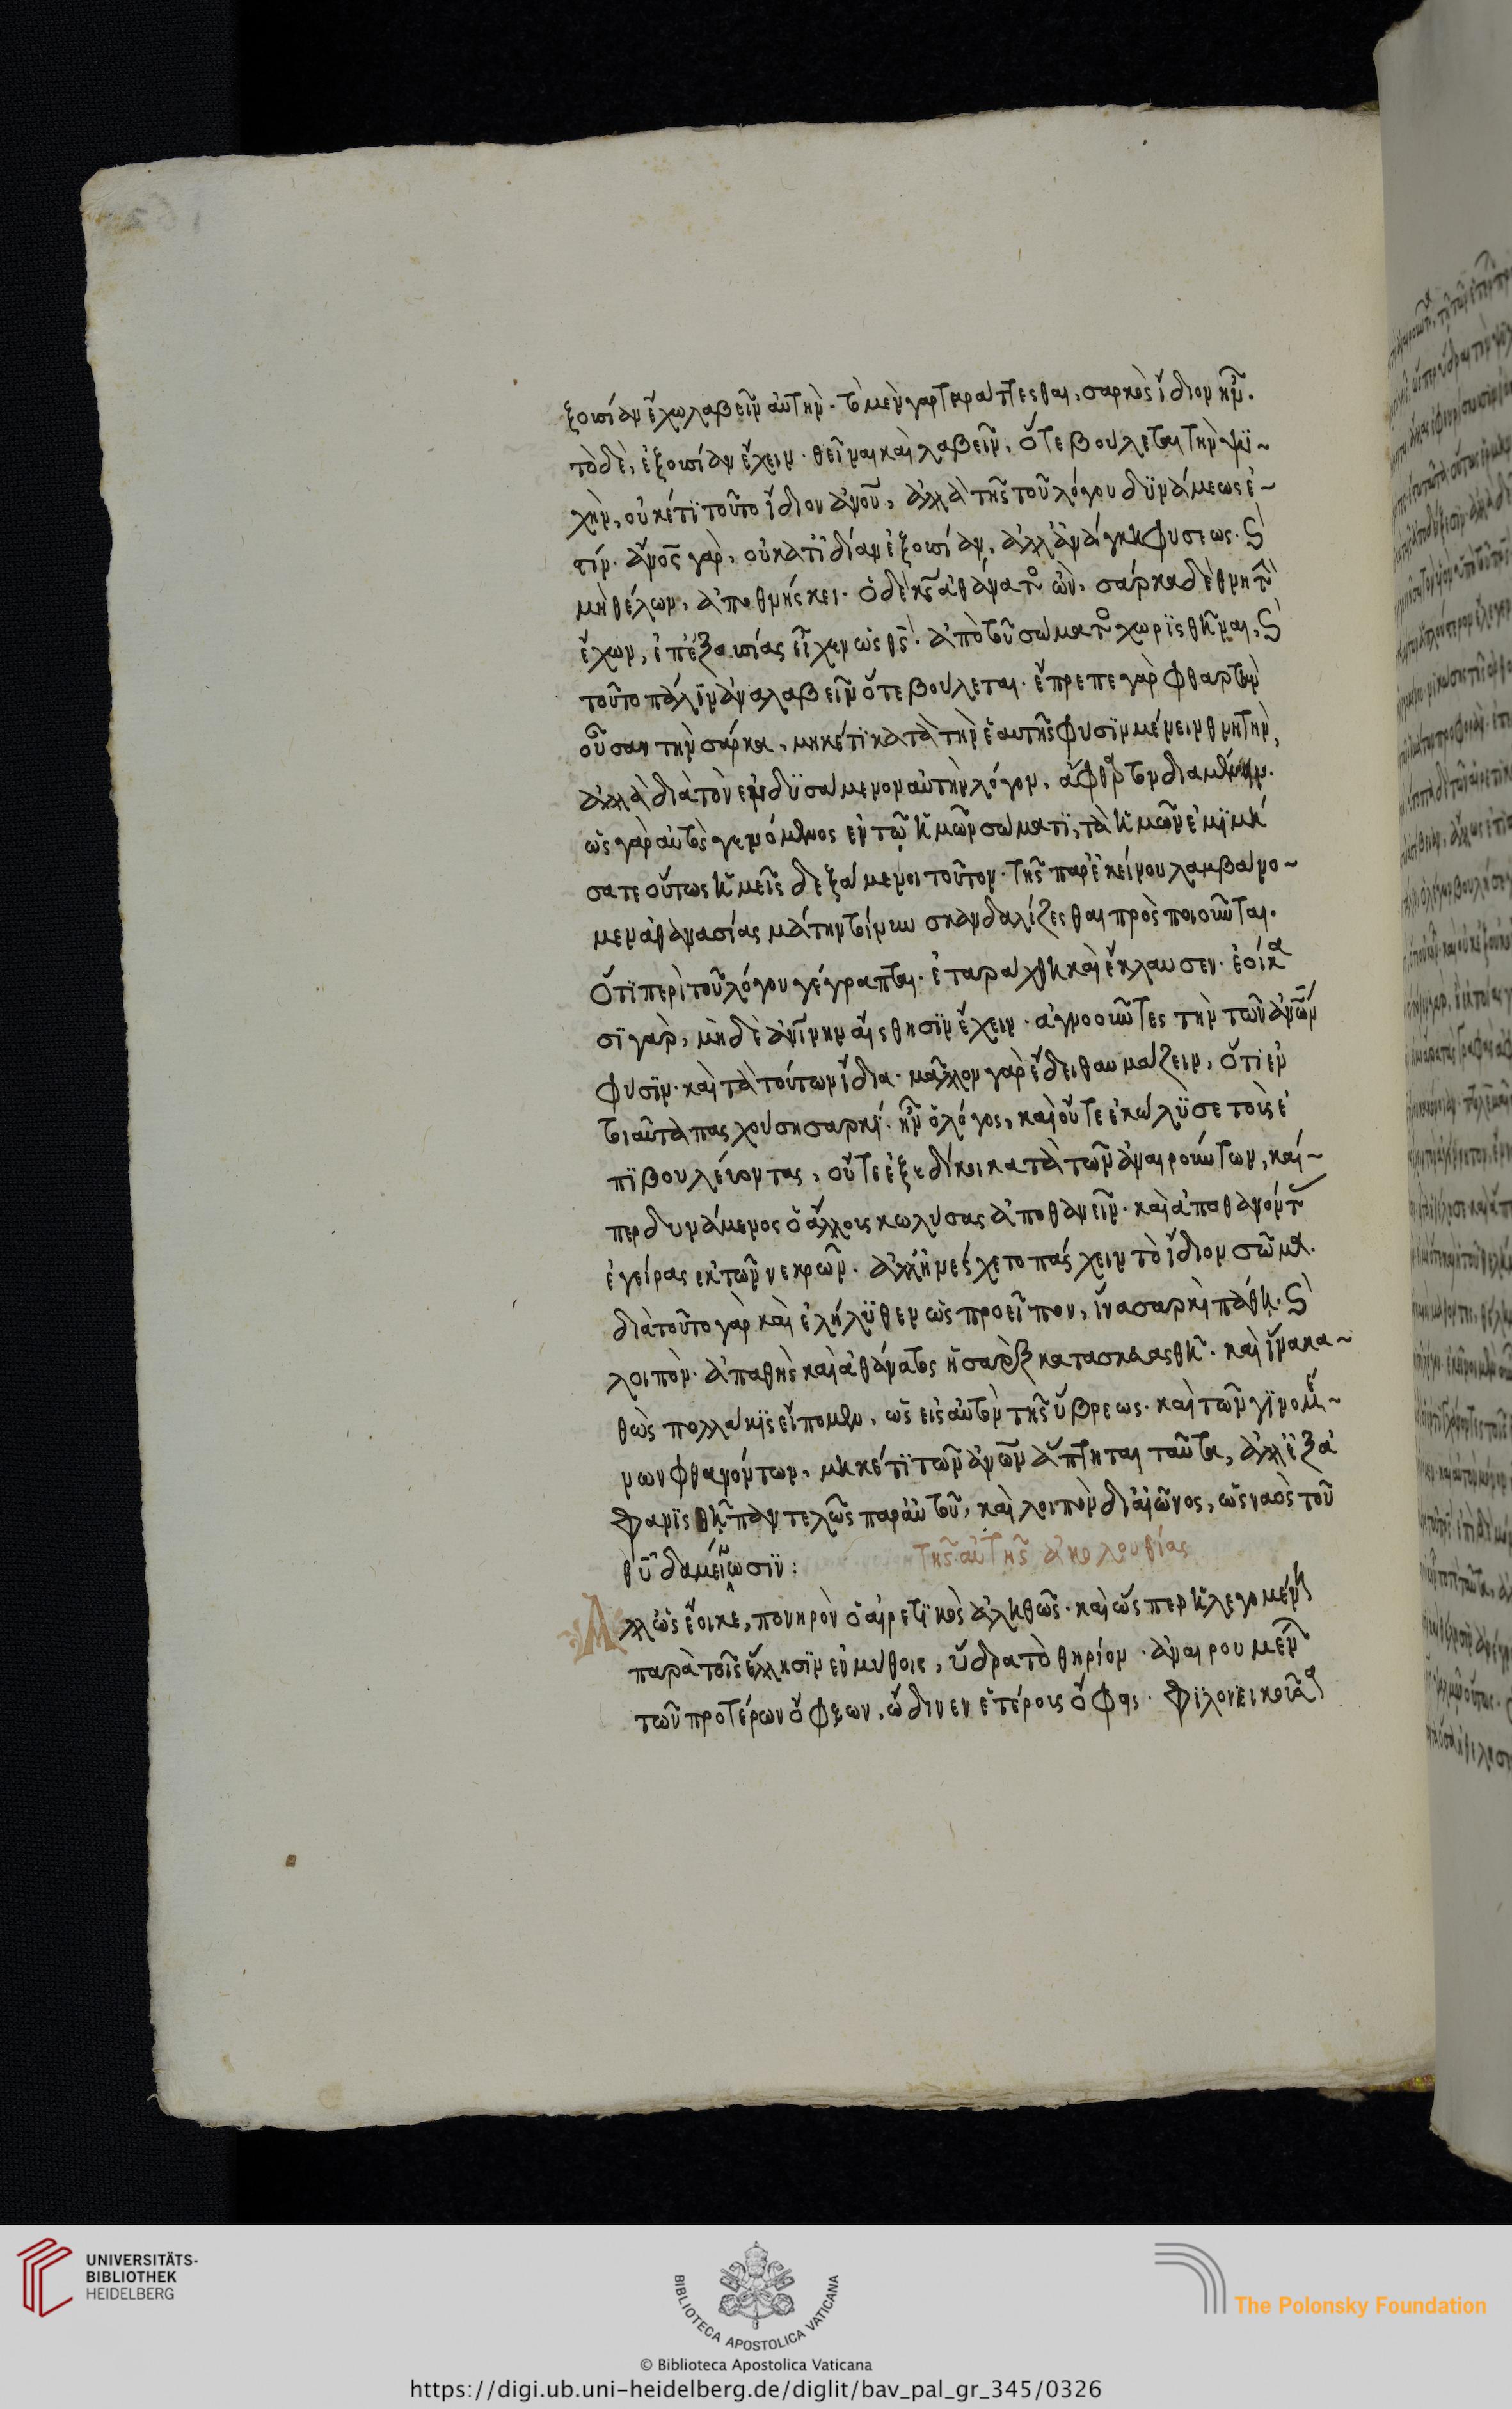 ξουσίαν ἔχω λαβεῖν αὐτήν· τὸ μὲν γὰρ ταράττεσθαι, σαρκὸς ἴδιον ἦν.
τὸ δὲ, ἐξουσίαν ἔχειν· θεῖναι καὶ λαβεῖν, ὅτε βούλεται τὴν ψυ-
χὴν, οὐκέτι τοῦτο ἴδιον ἀνου, ἀλλὰ τῆς τοῦ λόγου δυνάμεως ἐ-
τίν. ἄνος γὰρ, οὐ κατ' ἰδίαν ἐξουσίαν, ἀλλ' ἀνάγκη φύσεως. καὶ
μὴ θέλων, ἀποθνήσκει· ὁ δὲ κς ἀθάνατος ὢν, σάρκα δὲ θνητὴν
ἔχων, ἐπ' ἐξουσίας εἶχεν ὡς θς· ἀπὸ τοῦ σώματος χωρισθῆναι, καὶ
τοῦτο πάλιν ἀναλαβεῖν ὅτε βούλεται. ἔπρεπε γὰρ φθαρτὴν
οὖσαν τὴν σάρκα, μηκέτι κατὰ τὴν ἑαυτῆς φύσιν μένειν θνητήν,
ἀλλὰ διὰ τὸν ἐνδυσάμενον αὐτὴν λόγον, ἄφθαρτον διαμένειν.
ὡς γὰρ αὐτὸς γενόμενος ἐν τῷ ἡμῶν σώματι, τὰ ἡμῶν ἐμιμή
σατο οὕτως ἡμεῖς δεξάμενοι τοῦτον· τῆς παρ' ἐκείνου λαμβάνο-
μεν ἀθανασίας μάτην τοίνυν σκανδαλίζεσθαι προσποιοῦνται.
ὅτι περὶ τοῦ λόγου γέγραπται· ἐταράχθη καὶ ἔκλαυσεν. ἐοίκα
σι γὰρ, μηδὲ ἀνίνην αἴσθησιν ἔχειν· ἀγνοοῦντες τὴν τῶν ἀνων
φύσιν· καὶ τὰ τούτων ἴδια· μᾶλλον γὰρ ἔδει θαυμάζειν, ὅτι ἐν
τοιαῦτα πασχούσῃ σαρκί· ἦν ὁ λόγος, καὶ οὔτε ἐκώλυσε τοὺς ἐ
πιβουλεύοντας, οὔτε ἐξεδίκει κατὰ τῶν ἀναιρούντων, καί-
περ δυνάμενος ὁ ἄλλους κωλύσας ἀποθανεῖν· καὶ ἀποθανόντας
ἐγείρας ἐκ τῶν νεκρῶν. ἀλλ' ἠνέσχετο πάσχειν τὸ ἴδιον σῶμα.
διὰ τοῦτο γὰρ καὶ ἐλήλυθεν ὡς προεῖπον, ἵνα σαρκὶ πάθῃ. καὶ
λοιπὸν· ἀπαθὴς καὶ ἀθάνατος ἡ σὰρξ κατασκευασθῇ. καὶ ἵνα κα-
θὼς πολλάκις εἴπομεν, ὡς εἰς αὐτὸν τῆς ὕβρεως· καὶ τῶν γινομέ-
νων φθανόντων, μηκέτι τῶν ἀνων ἅπτηται ταῦτα, ἀλλ' ἐξα
φανισθῇ παντελῶς παρ' αὐτοῦ, καὶ λοιπὸν δι' αἰῶνος, ὡς ναὸς τοῦ
θυ διαμείνωσιν:
τῆς αὐτῆς ἀκολουθίας
Ἀλλ' ὡς ἔοικε, πονηρὸν ὁ αἱρετικὸς ἀληθῶς· καὶ ὥσπερ ἡ λεγομένη
παρὰ τοῖς ἕλλησιν ἐν μύθοις, ὕδρα τὸ θηρίον· ἀναιρουμένων
τῶν προτέρων ὄφεων, ὤδινεν ἑτέρους ὄφεις. φιλονεικοῦσα
UNIVERSITÄTS-
BIBLIOTHEK
HEIDELBERG
BIBLIOTECA APOSTOLICA VATICANA
The Polonsky Foundation
© Biblioteca Apostolica Vaticana
https://digi.ub.uni-heidelberg.de/diglit/bav_pal_gr_345/0326